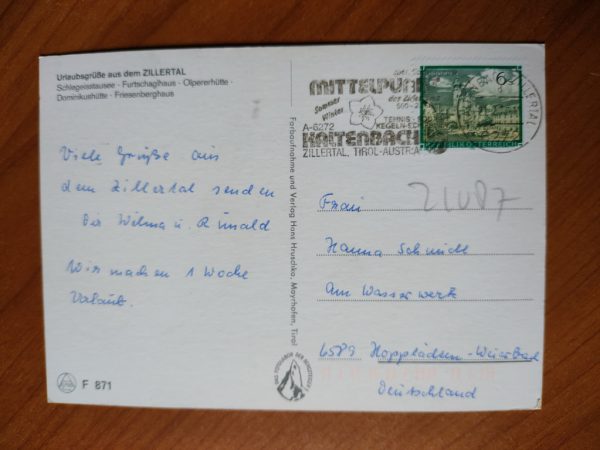 Urlaubsgrüße aus dem ZILLERTAL
Schlegeisstausee · Furtschaglhaus · Olpererhütte ·
Dominikushütte · Friesenberghaus
Viele Grüße aus
dem Zillertal senden
Dir Wilma u.
Wir machen 1 Woche
Urlaub.
F 871
Farbaufnahme und Verlag Hans Hruschka, Mayrhofen, Tirol
MITTELPUNKT
Sommer
Winter
A-6272
TENNIS
KEGELN
KALTENBACH
ZILLERTAL, TIROL-AUSTRIA
6
REPUBLIK ÖSTERREICH
Frau
Hanna Schmidt
Am Wasserwerk
6589 Hoppstädten-Weiersbach
Deutschland